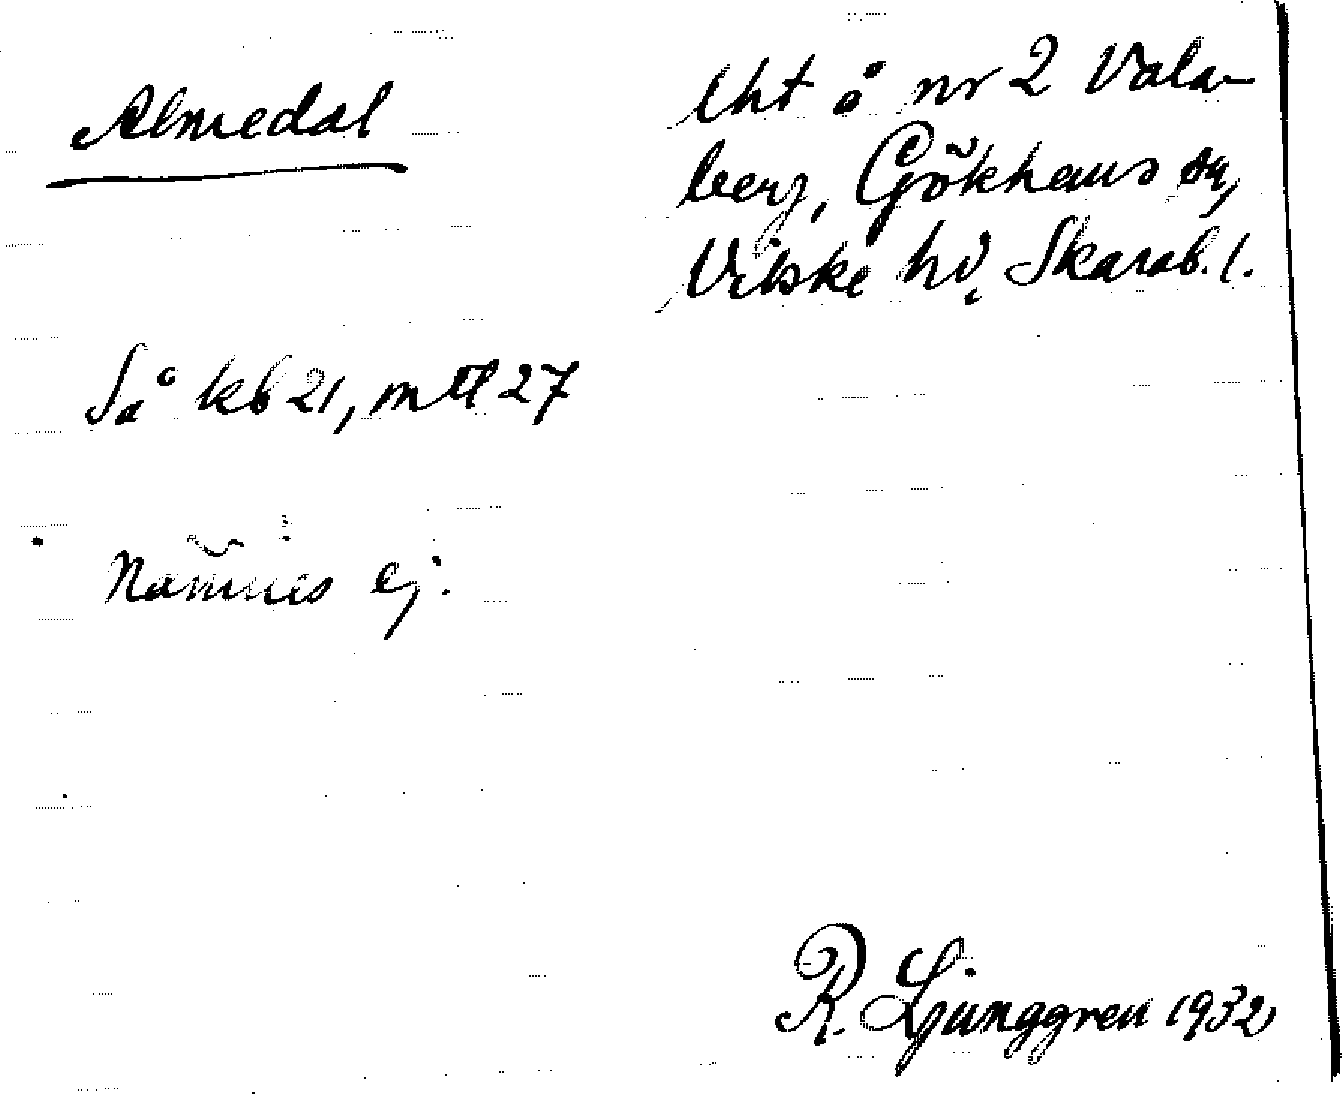 Almedal
lht å nr 2 Vala-
berg, Gökhems sn,
Vilske hd, Skarab. l.
Så kb 21, mtl 27
Nämnes ej.
R. Ljunggren 1932